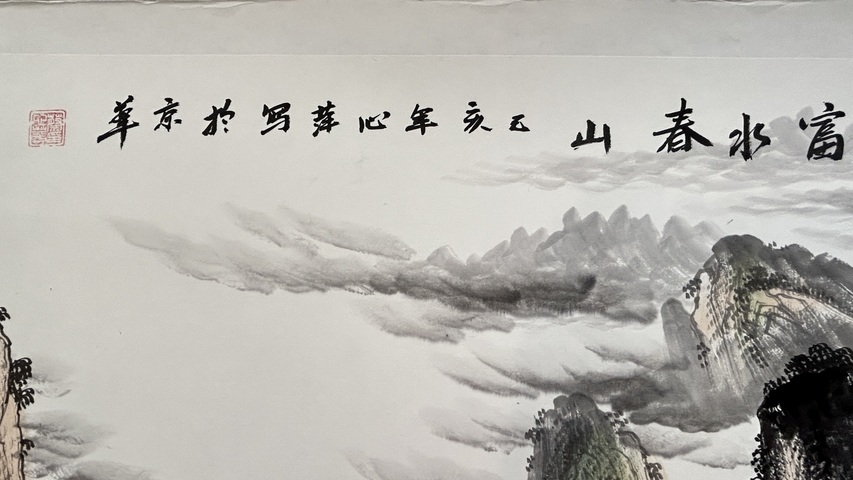 富水春山 己亥年心萍写於京華